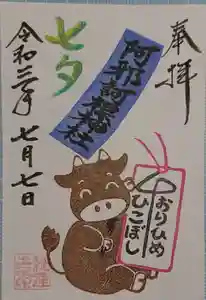 奉拝
阿邪訶根神社
七夕
令和三年 七月七日
おりひめ
ひこぼし